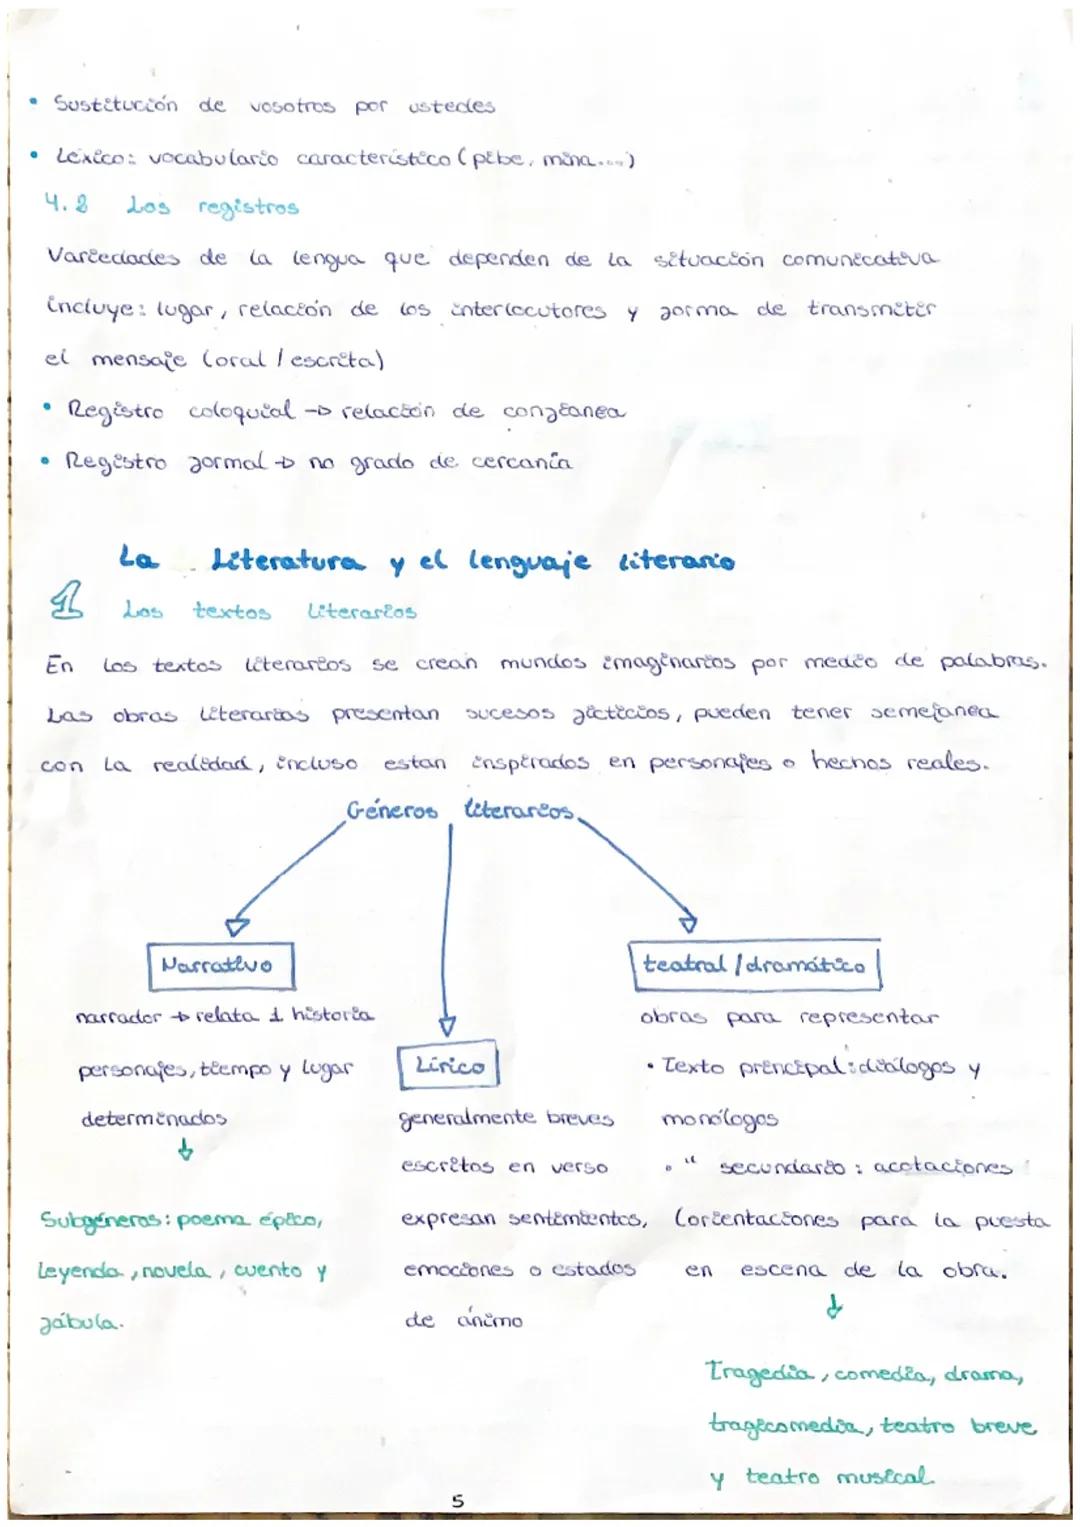 • Sustitución de vosotros por ustedes
• Léxico: vocabulario característico (pibe, mina....)
4.2 Los registros
Variedades de la lengua que dependen de la situación comunicativa
incluye: lugar, relación de los interlocutores y forma de transmitir
el mensaje (oral / escrita)
• Registro coloquial → relación de confianea
• Registro formal → no grado de cercanía
La Literatura y el lenguaje literario
1 Los textos literarios
En los textos literarios se crean mundos imaginarios por medio de palabras.
Las obras literarias presentan sucesos ficticios, pueden tener semejanea
con la realidad, incluso estan inspirados en personajes o hechos reales.
Géneros literarios
Narrativo
narrador → relata 1 historia
personajes, tiempo y lugar
determinados
↓
Subgéneros: poema épico,
leyenda, novela, cuento y
fábula.
Lírico
generalmente breves
escritos en verso
expresan sentimientos,
emociones o estados
de ánimo
teatral / dramático
obras para representar
• Texto principal: diálogos y
monólogos
• " secundario: acotaciones
(orientaciones para la puesta
en escena de la obra.
↓
Tragedia, comedia, drama,
tragicomedia, teatro breve
y teatro musical
5